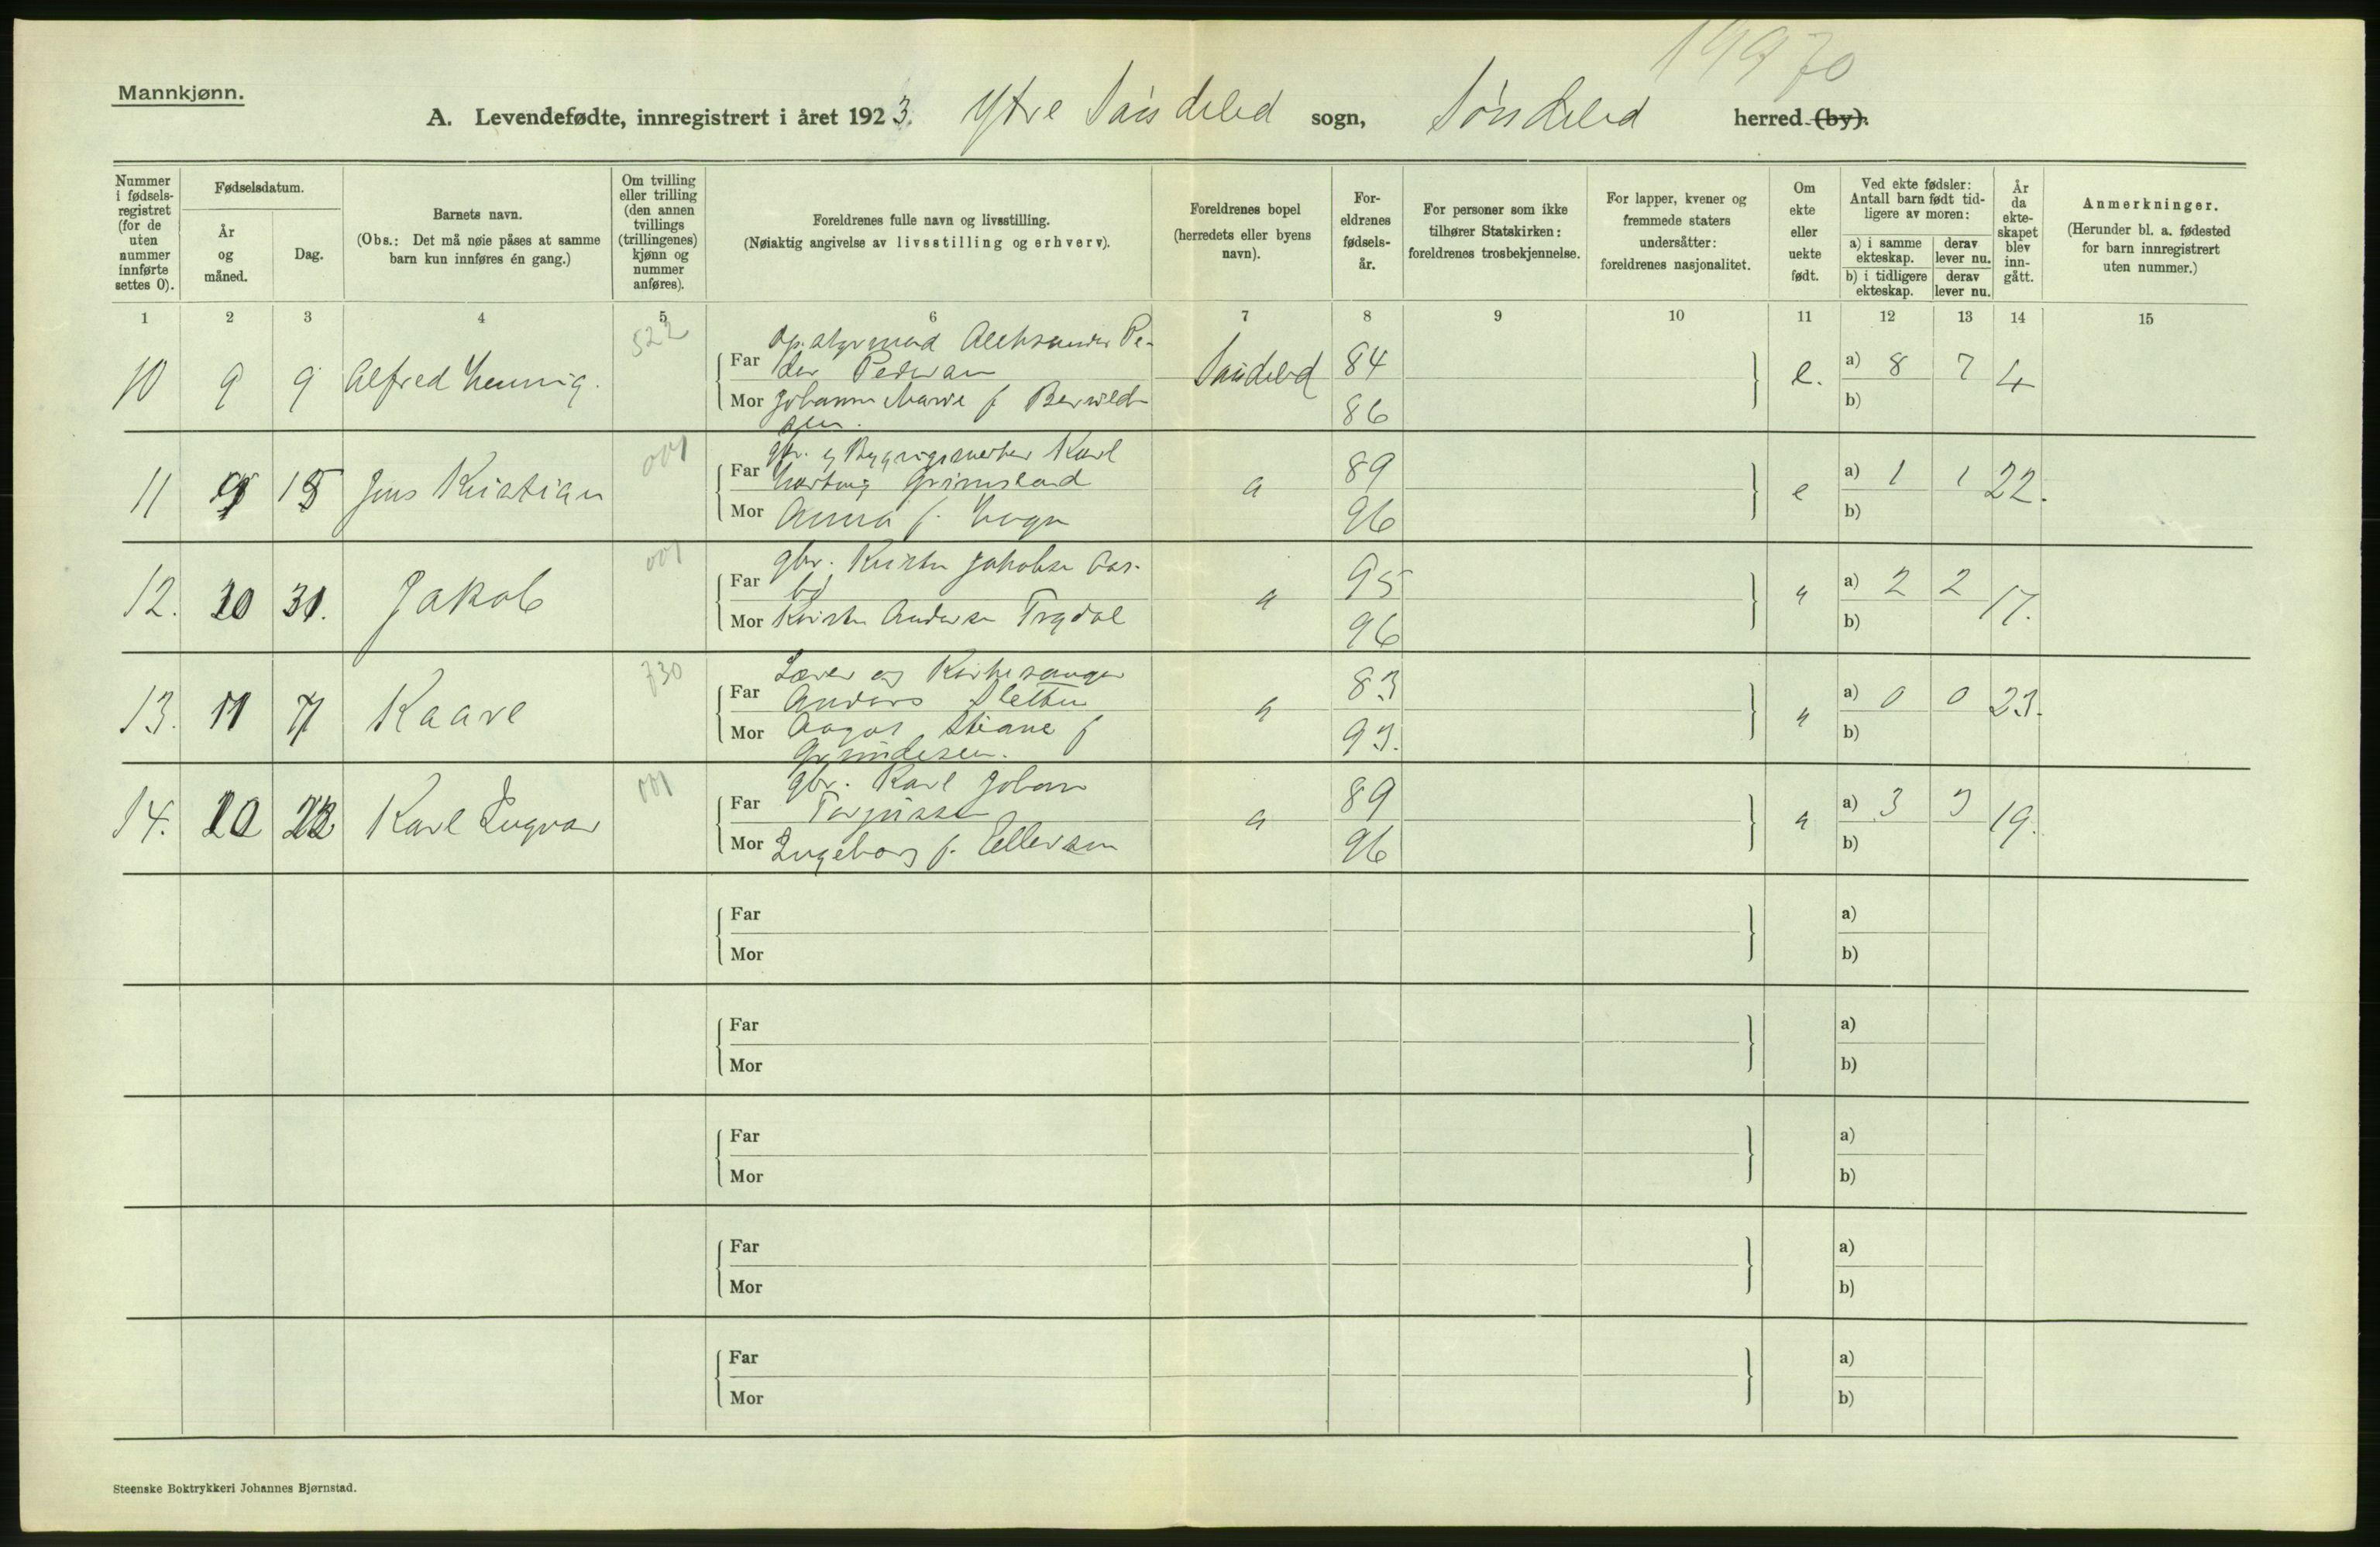 19970
Mannkjønn.
A. Levendefødte, innregistrert i året 1923. Ytre Søndeled sogn, Søndeled herred (by).
Nummer i fødsels-registret (for de uten nummer innførte settes 0).
Fødselsdatum.
År og måned.
Dag.
Barnets navn.
(Obs.: Det må nøie påses at samme barn kun innføres én gang.)
Om tvilling eller trilling (den annen tvillings (trillingenes) kjønn og nummer anføres).
Foreldrenes fulle navn og livsstilling.
(Nøiaktig angivelse av livsstilling og erhverv).
Foreldrenes bopel (herredets eller byens navn).
For-eldrenes fødsels-år.
For personer som ikke tilhører Statskirken: foreldrenes trosbekjennelse.
For lapper, kvener og fremmede staters undersåtter: foreldrenes nasjonalitet.
Om ekte eller uekte født.
Ved ekte fødsler: Antall barn født tid-ligere av moren:
a) i samme ekteskap.
derav lever nu.
b) i tidligere ekteskap.
derav lever nu.
År da ekte-skapet blev inn-gått.
Anmerkninger.
(Herunder bl. a. fødested for barn innregistrert uten nummer.)
1 2 3 4 5 6 7 8 9 10 11 12 13 14 15
522
10 9 9 Alfred Hennig.
Far Aleksander Pe-
der Pedersen
Søndeled 84 e. a) 8 7 4
Mor Johanne Marie f
86 b)
001
11 9 15 Jens Kristian
Far gbr. og Karl
Hartvig Grimsland
" 89 e a) 1 1 22.
Mor Anna f.
96 b)
001
12. 10 31. Jakob
Far gbr.
" 95 " a) 2 2 17.
Mor
96 b)
730
13. 11 7 Kaare
Far Lærer og Kirkesanger
Anders Sletten
" 83 " a) 0 0 23.
Mor f
93. b)
001
14. 10 22. Karl Ingvar
Far gbr. Karl Johan
Terjussen
" 89 " a) 3 3 19.
Mor Ingeborg f. Ellevsen
96 b)
Far a)
Mor b)
Far a)
Mor b)
Far a)
Mor b)
Far a)
Mor b)
Far a)
Mor b)
Steenske Boktrykkeri Johannes Bjørnstad.